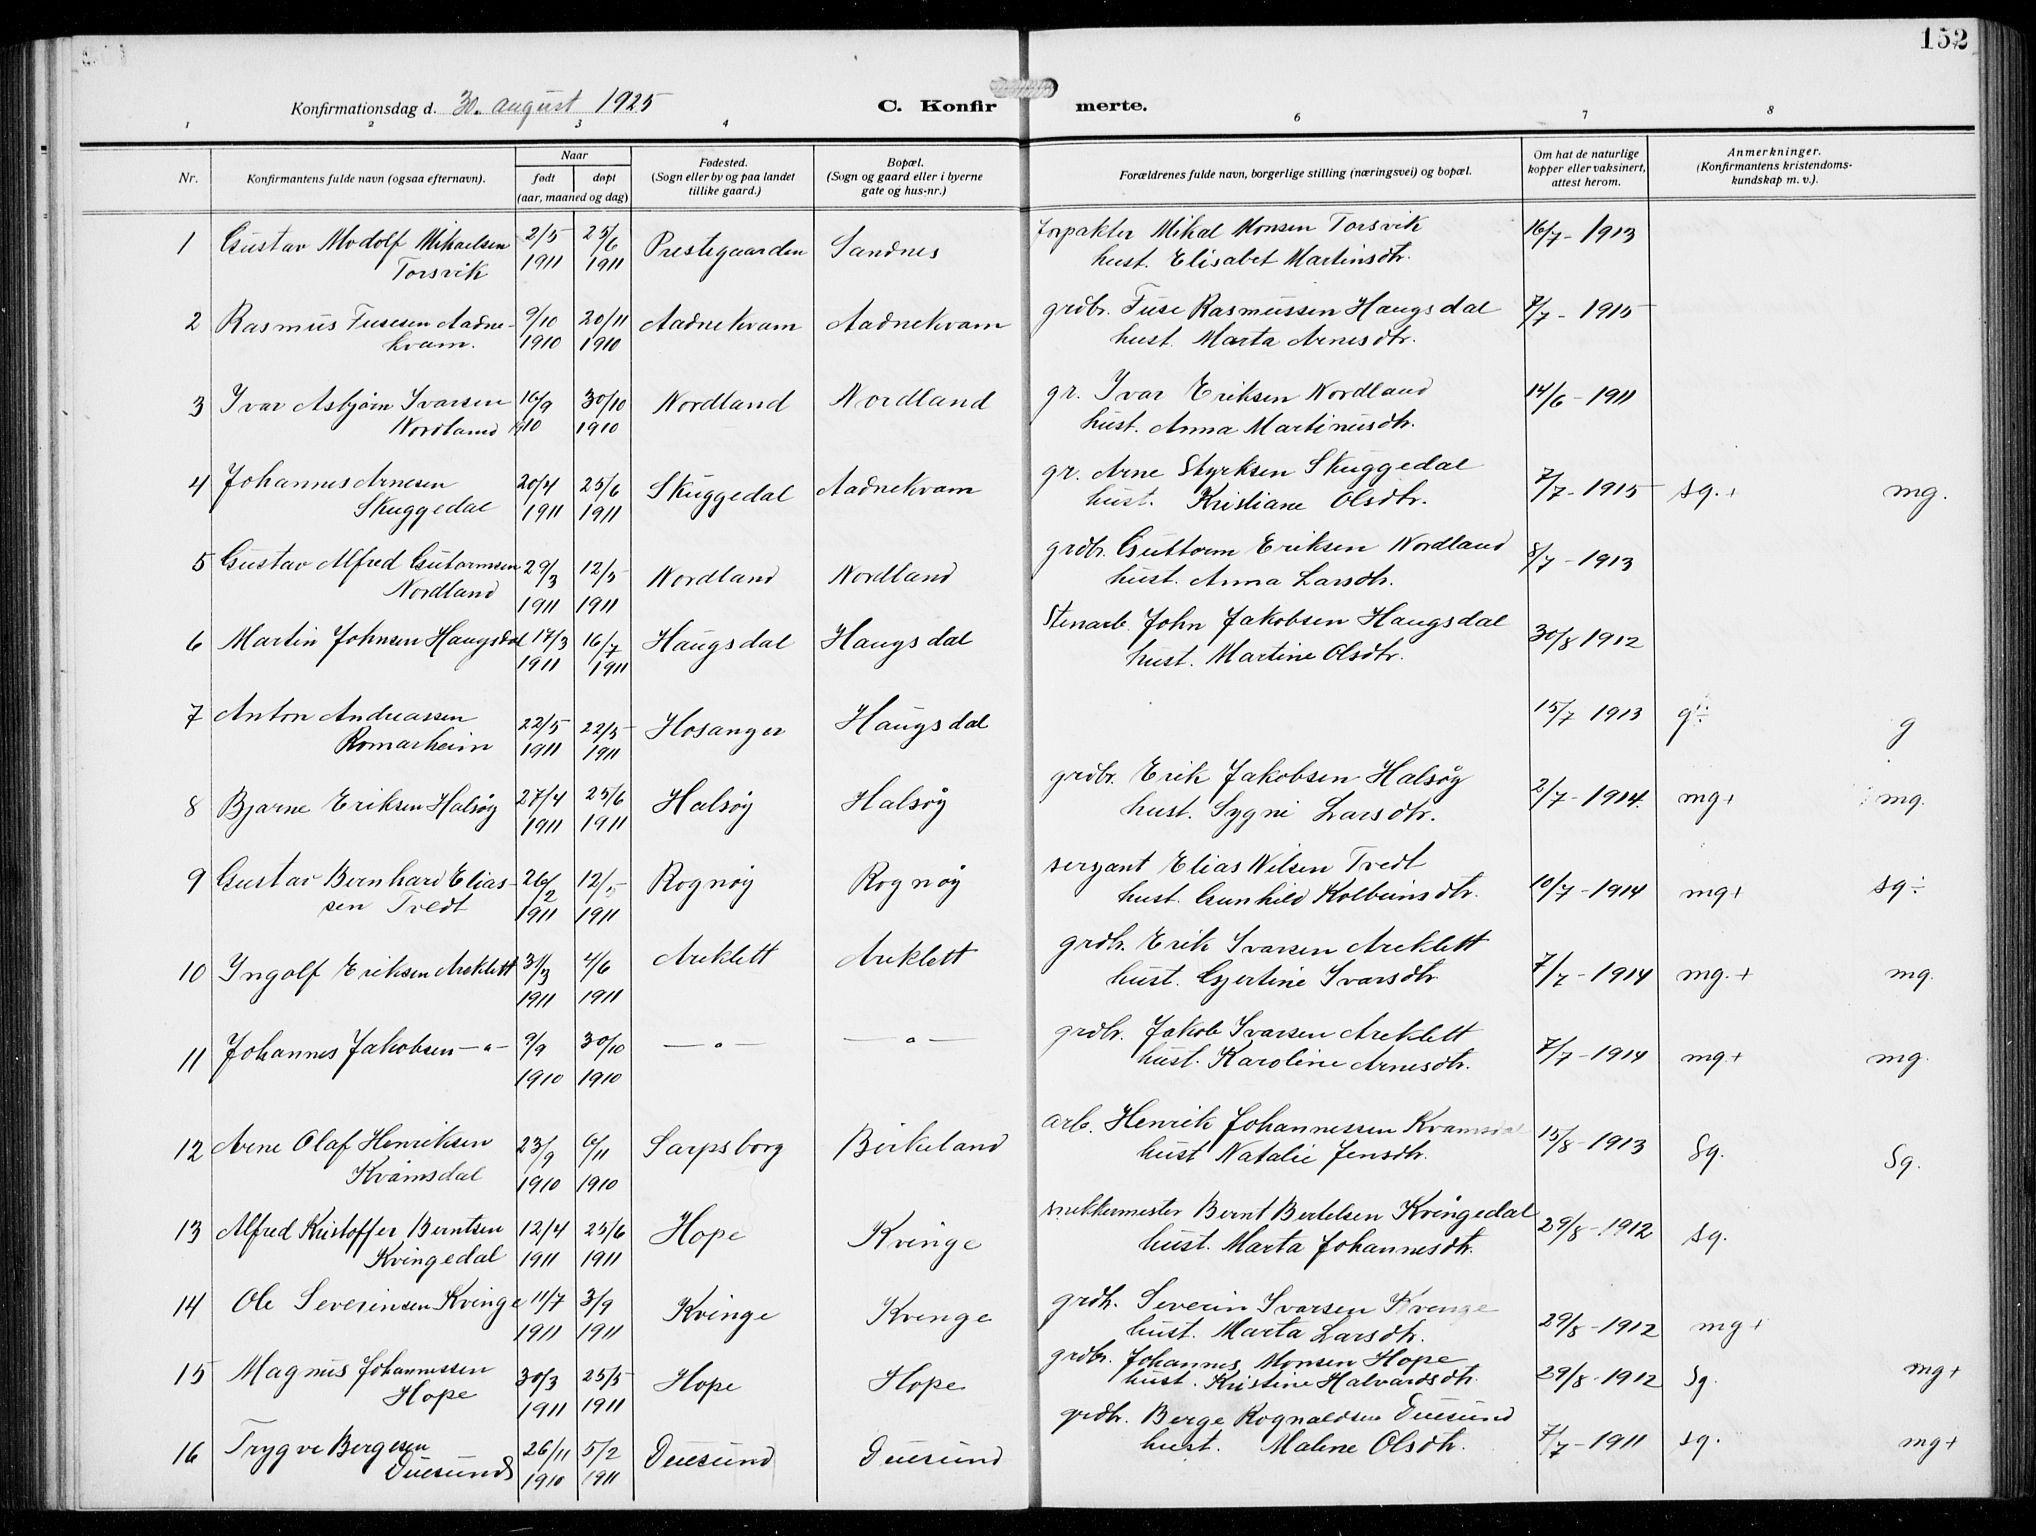 152
Konfirmationsdag d. 30. august 1925
C. Konfirmerte.
1 2 3 4 6 7 8
Nr.
Konfirmantens fulde navn (ogsaa efternavn).
Naar
født
døpt
(aar, maaned og dag)
Fødested.
(Sogn eller by og paa landet
tillike gaard.)
Bopæl.
(Sogn og gaard eller i byerne
gate og hus-nr.)
Forældrenes fulde navn, borgerlige stilling (næringsvei) og bopæl.
Om hat de naturlige
kopper eller vaksinert,
attest herom.
Anmerkninger.
(Konfirmantens kristendoms-
kundskap m. v.).
1 Gustav Modolf Mikaelsen 2/5 25/6 Prestegaarden Sandnes Forpakter Mikal Monsen Torsvik 16/7 - 1913
Torsvik 1911 1911 hust. Elisabet Martinsdtr.
2 Rasmus Fusesen Aadne- 9/10 20/11 Aadnekvam Aadnekvam grdbr. Fuse Rasmussen Haugsdal 7/7 - 1915
kvam. 1910 1910 hust. Marta Arnesdtr.
3 Ivar Asbjørn Ivarsen 16/9 30/10 Nordland Nordland gr. Ivar Eriksen Nordland 14/6 - 1911
Nordland 1910 1910 hust. Anna Martinusdtr.
4 Johannes Arnesen 20/4 25/6 Skuggedal Aadnekvam gr. Arne Styrksen Skuggedal 7/7 - 1915 sg.+ mg.
Skuggedal 1911 1911 hust. Kristiane Olsdtr.
5 Gustav Alfred Gutormsen 29/3 12/5 Nordland Nordland grdbr. Guttorm Eriksen Nordland 8/7 - 1913
Nordland 1911 1911 hust. Anna Larsdtr.
6 Martin Johnsen Haugsdal 17/3 16/7 Haugsdal Haugsdal Stenarb. John Jakobsen Haugsdal 30/8 1912
1911 1911 hust. Martine Olsdtr.
7 Anton Andreassen 22/5 22/5 Hosanger Haugsdal 15/7 1913 g÷ g
Romarheim 1911 1911
8 Bjarne Eriksen Halsøy 27/4 25/6 Halsøy Halsøy grdbr. Erik Jakobsen Halsøy 2/7 - 1914. mg+ mg.
1911 1911 hust. Sygni Larsdtr.
9 Gustav Bernhard Elias- 26/2 12/5 Rognøy Rognøy sersjant Elias Nilsen Tvedt 10/7 - 1914 mg+ sg÷
sen Tvedt 1911 1911 hust. Gunhild Kolbeinsdtr.
10 Ingolf Eriksen Areklett 31/3 4/6 Areklett Areklett grdbr. Erik Ivarsen Areklett 7/7 - 1914 mg.+ mg.
1911 1911 hust. Gjertine Ivarsdtr
11 Johannes Jakobsen —"— 9/9 30/10 —"— —"— grdbr. Jakob Ivarsen Areklett 7/7 - 1914 mg+ mg.
1910 1910 hust. Karoline Arnesdtr.
12 Arne Olaf Henriksen 23/9 6/11 Sarpsborg Birkeland arb. Henrik Johannessen Kvamsdal 15/8 - 1913 Sg. Sg.
Kvamsdal 1910 1910 hust Natalie Jensdtr.
13 Alfred Kristoffer Berntsen 12/4 25/6 Hope Kvinge snekkermester Bernt Bertelsen Kvingedal 29/8 - 1912 sg.
Kvingedal 1911 1911 hust. Marta Johannesdtr.
14 Ole Severinsen Kvinge 11/7 3/9 Kvinge Kvinge grdbr. Severin Ivarsen Kvinge 29/8 - 1912 mg+
1911 1911 hust. Marta Larsdtr.
15 Magnus Johannessen 30/3 25/5 Hope Hope grdbr. Johannes Monsen Hope 29/8 - 1912 Sg. mg+
Hope 1911 1911 hust. Kristine Halvardsdtr.
16 Trygve Bergesen 26/11 5/2 Duesund Duesund grdbr. Berge Rognaldsen Duesund 7/7 - 1911 sg. mg+
Duesund 1910 1911 hust. Malene Olsdtr.